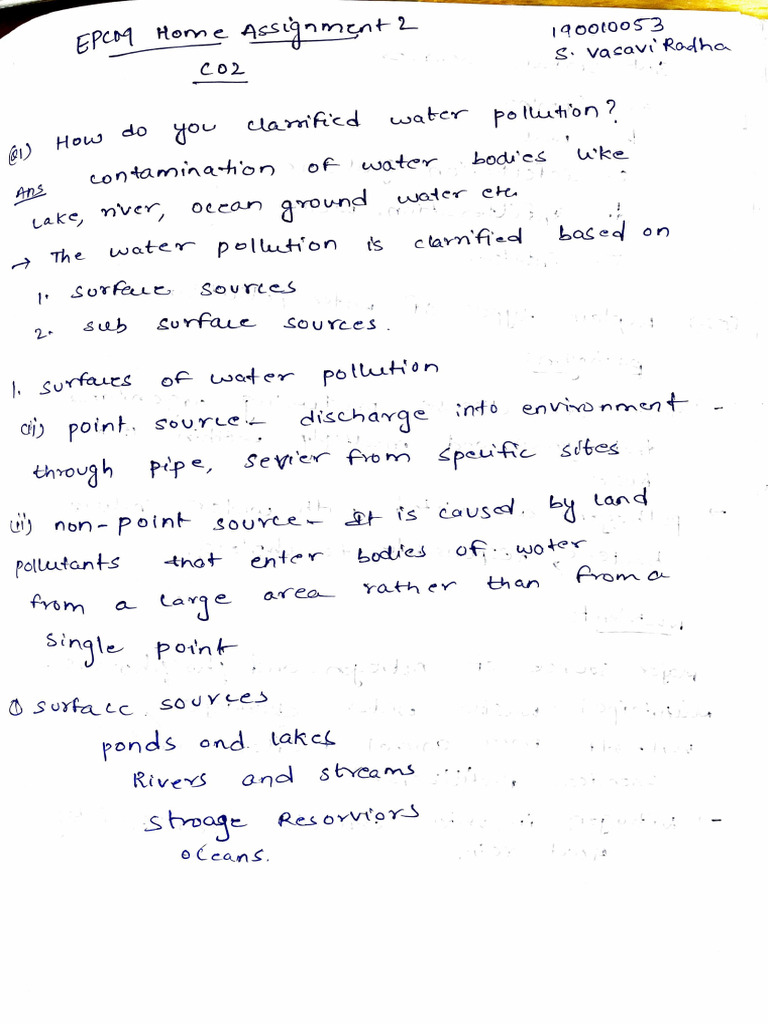 EPC09 Home Assignment 2
190010053
S. Vasavi Radha
CO2
Q1) How do you classified water pollution?
Ans contamination of water bodies like
Lake, river, ocean ground water etc.
→ The water pollution is classified based on
1. surface sources
2. sub surface sources.
1. surfaces of water pollution
(i) point source - discharge into environment -
through pipe, sevier from specific sites
(ii) non-point source - It is caused by land
pollutants that enter bodies of water
from a large area rather than from a
single point
① surface sources
ponds and lakes
Rivers and streams
stroage Resorviors
oceans.